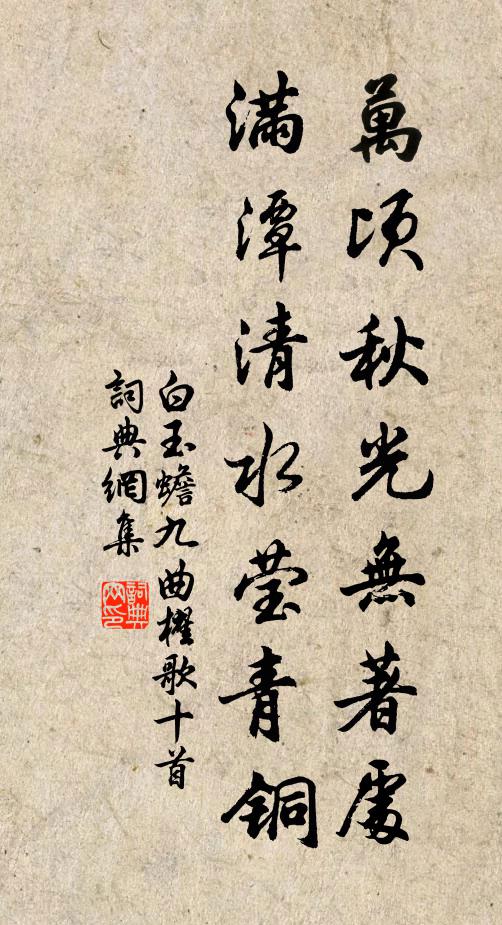 萬頃秋光無著處
滿潭清水莹青铜
白玉蟾九曲櫂歌十首
詞典網集
詞典
网印